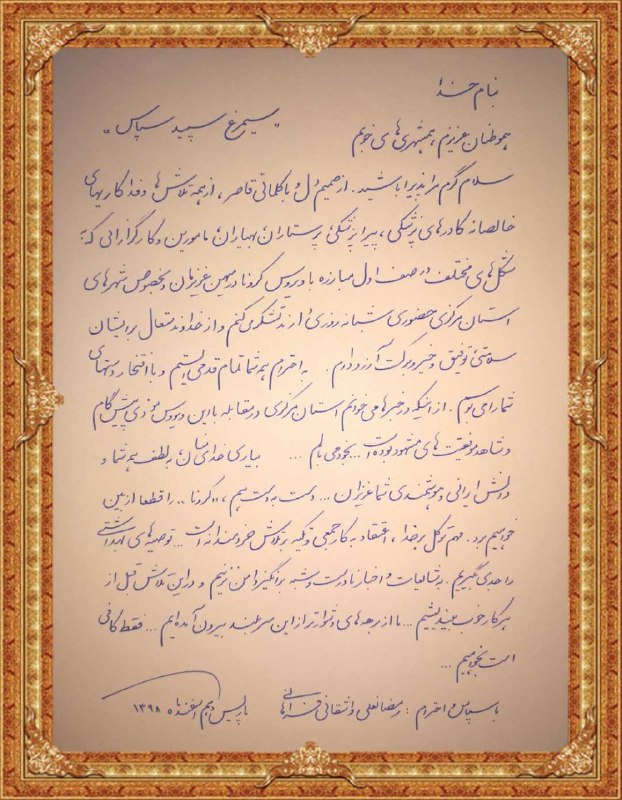 بنام خدا
"سیمرغ سپید سپاس"
هموطنان عزیزم، همشهری های خوبم
سلام گرم مرا پذیرا باشید. از صمیم دل و با کلماتی قاصر، از همه تلاش ها و فداکاریهای
خالصانه کادرهای پزشکی، پیراپزشکی پرستاران بهیاران مامورین و کارگزارانی که به
شکل های مختلف در صف اول مبارزه با ویروس کرونا در میهن عزیزمان و بخصوص شهرهای
استان مرکزی حضوری شبانه روزی دارند تشکر می کنم و از خداوند متعال برایشان
سلامتی توفیق و خیر و برکت آرزو دارم. به احترام همه شما تمام قد می ایستم و با افتخار دستهای
شما را می بوسم. از اینکه در خبرها می خوانم استان مرکزی در مقابله با این ویروس موذی پیش گام
و شاهد موفقیت های مشهود بوده است... بخود می بالم ... بیاری خدای منان بلطف همه شما و
دانش ایرانی و هوشمندی شما عزیزان ... دست به دست هم، «کرونا» .. را قطعا از بین
خواهیم برد. مهم توکل بر خدا، اعتقاد به کار جمعی و تکیه بر تلاش خردمندانه است .. توصیه های بهداشتی
را جدی بگیریم. به شایعات و اخبار نادرست و شبهه برانگیز دامن نزنیم و در این تلاش قبل از
هر کار خوب بیندیشیم ... ما از رهه های دشوارتر از این سربلند بیرون آمده ایم ... فقط کافی
است بخواهیم ...
با سپاس و احترام : رمضانعلی واشقانی فراهانی
پاریس دهم اسفندماه ۱۳۹۸